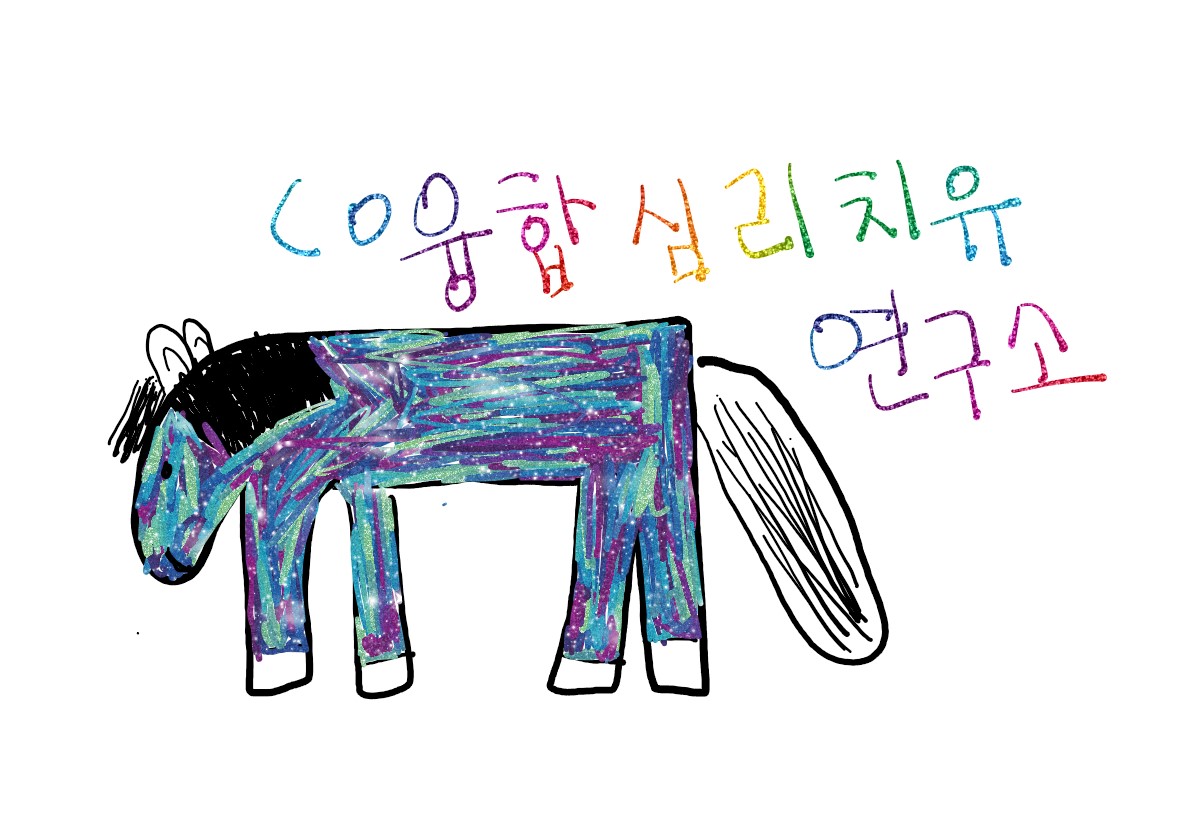 CO융합 심리치유
연구소